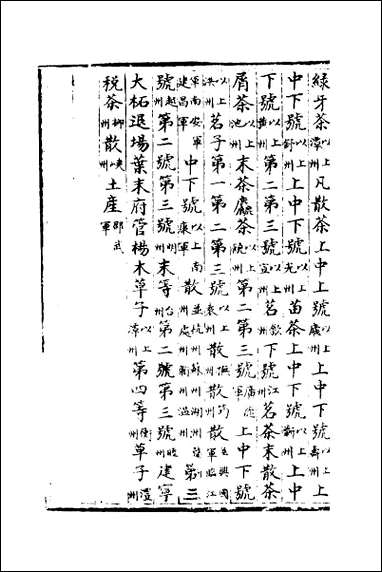 綠牙茶以上潭州凡散茶上中上號以上廬州上中下號以上壽州上
中下號以上舒州上中下號以上光州苗茶上中下號以上蘄州上中
下號以上黃州第二第三號宣州茗歙州下號江州茗茶末散茶
屑茶以上池州末茶麤茶以上饒州第二第三號廣德軍上中下號
以上洪州茗子第一第二第三號以上袁州散撫筠州散吉州興國臨江軍
建昌軍南安軍中下號以上南康軍散並杭州蘇州湖州處州衢州溫州第三
號越州第二號第三號明州末等台州第二號第三號睦州建寧
大柘退場葉末府管楊木草子以上漳州第四等衢州草子澧州
稅茶郴州散峽州土產邵武軍